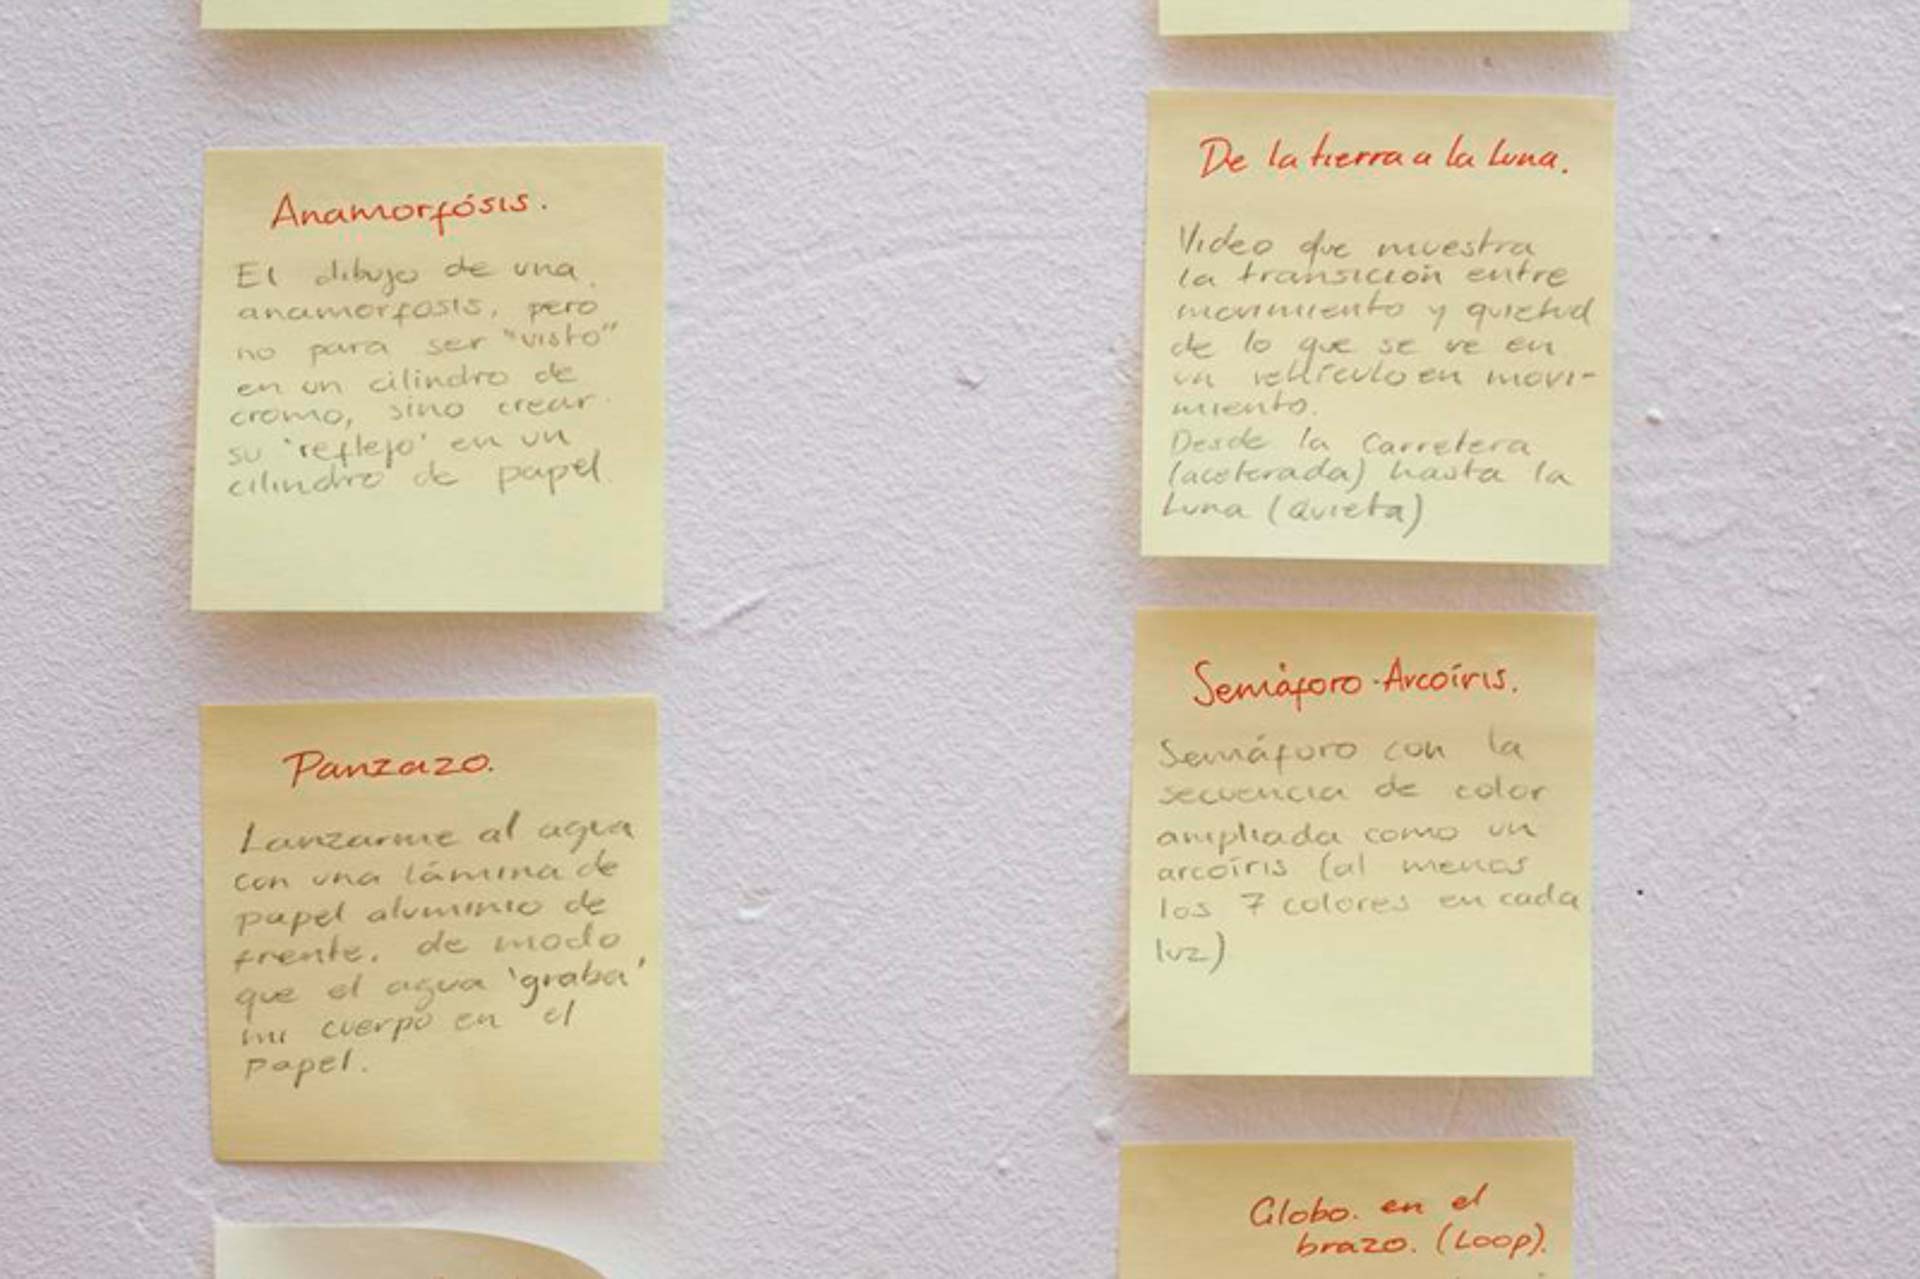 Anamorfósis.
El dibujo de una
anamorfosis, pero
no para ser "visto"
en un cilindro de
cromo, sino crear
su 'reflejo' en un
cilindro de papel
Panzazo.
Lanzarme al agua
con una lámina de
papel aluminio de
frente, de modo
que el agua 'graba'
mi cuerpo en el
papel.
De la tierra a la Luna.
Video que muestra
la transición entre
movimiento y quietud
de lo que se ve en
un vehículo en movi-
miento.
Desde la Carretera
(acelerada) hasta la
Luna (Quieta)
Semáforo-Arcoíris.
Semáforo con la
secuencia de color
ampliada como un
arcoíris (al menos
los 7 colores en cada
luz)
Globo. en el
brazo. (Loop).